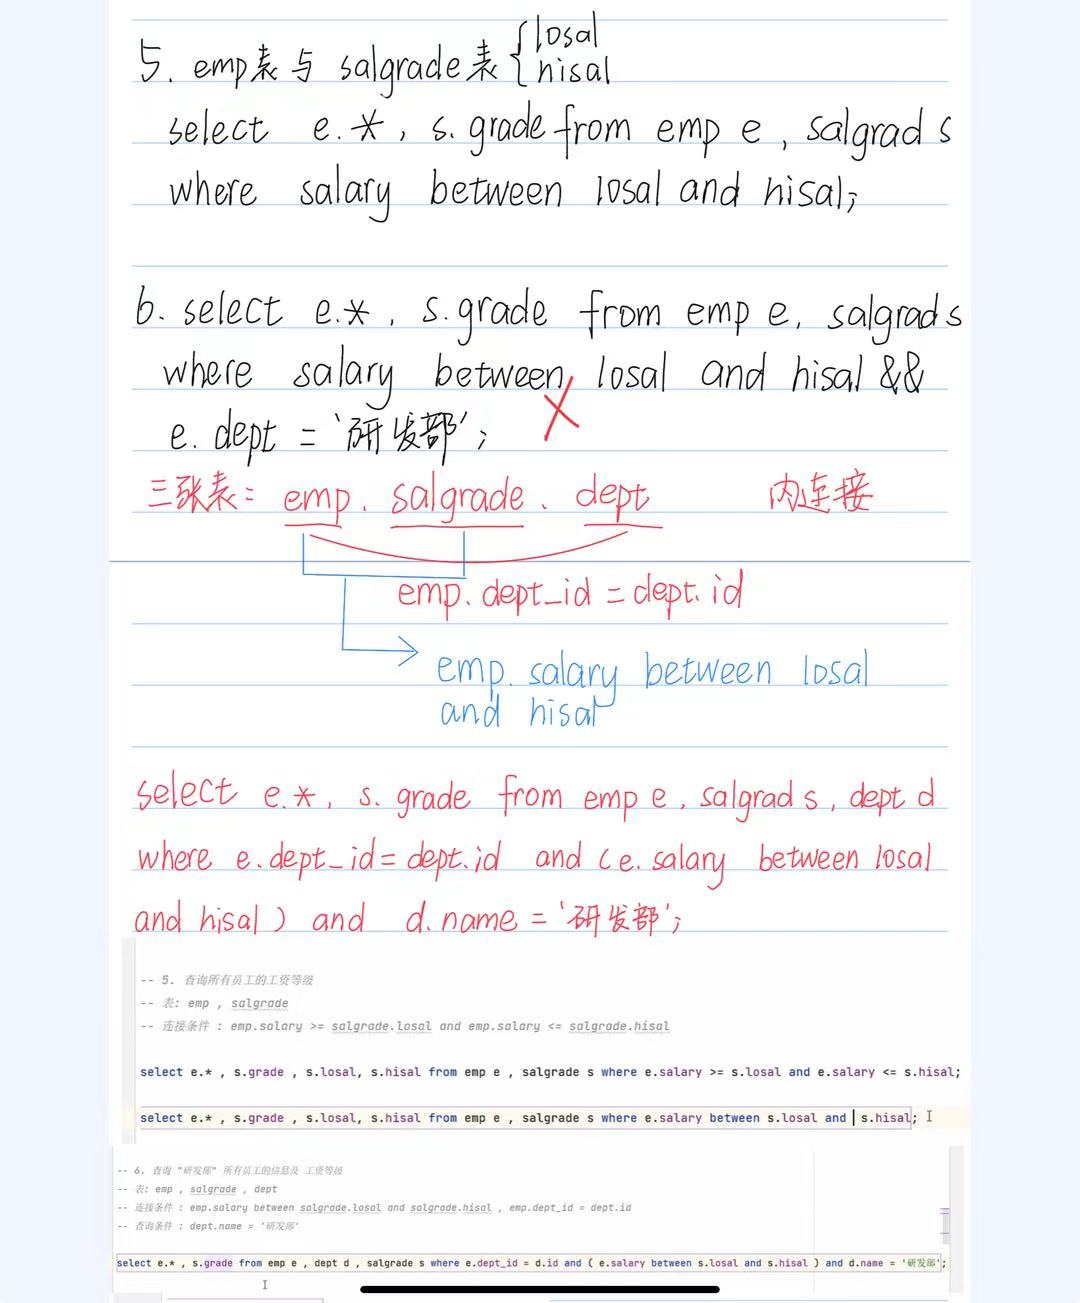 5. emp表与 salgrade表{losal
hisal
select e.*, s.grade from emp e, salgrad s
where salary between losal and hisal;
6. select e.*, s.grade from emp e, salgrad s
where salary between losal and hisal &&
e.dept = '研发部';
三张表: emp. salgrade. dept 内连接
emp.dept_id = dept.id
emp.salary between losal
and hisal
select e.*, s.grade from emp e, salgrad s, dept d
where e.dept_id = dept.id and (e.salary between losal
and hisal) and d.name = '研发部';
-- 5. 查询所有员工的工资等级
-- 表: emp , salgrade
-- 连接条件 : emp.salary >= salgrade.losal and emp.salary <= salgrade.hisal
select e.* , s.grade , s.losal, s.hisal from emp e , salgrade s where e.salary >= s.losal and e.salary <= s.hisal;
select e.* , s.grade , s.losal, s.hisal from emp e , salgrade s where e.salary between s.losal and s.hisal;
-- 6. 查询 "研发部" 所有员工的信息及 工资等级
-- 表: emp , salgrade , dept
-- 连接条件 : emp.salary between salgrade.losal and salgrade.hisal , emp.dept_id = dept.id
-- 查询条件 : dept.name = '研发部'
select e.* , s.grade from emp e , dept d , salgrade s where e.dept_id = d.id and ( e.salary between s.losal and s.hisal ) and d.name = '研发部';